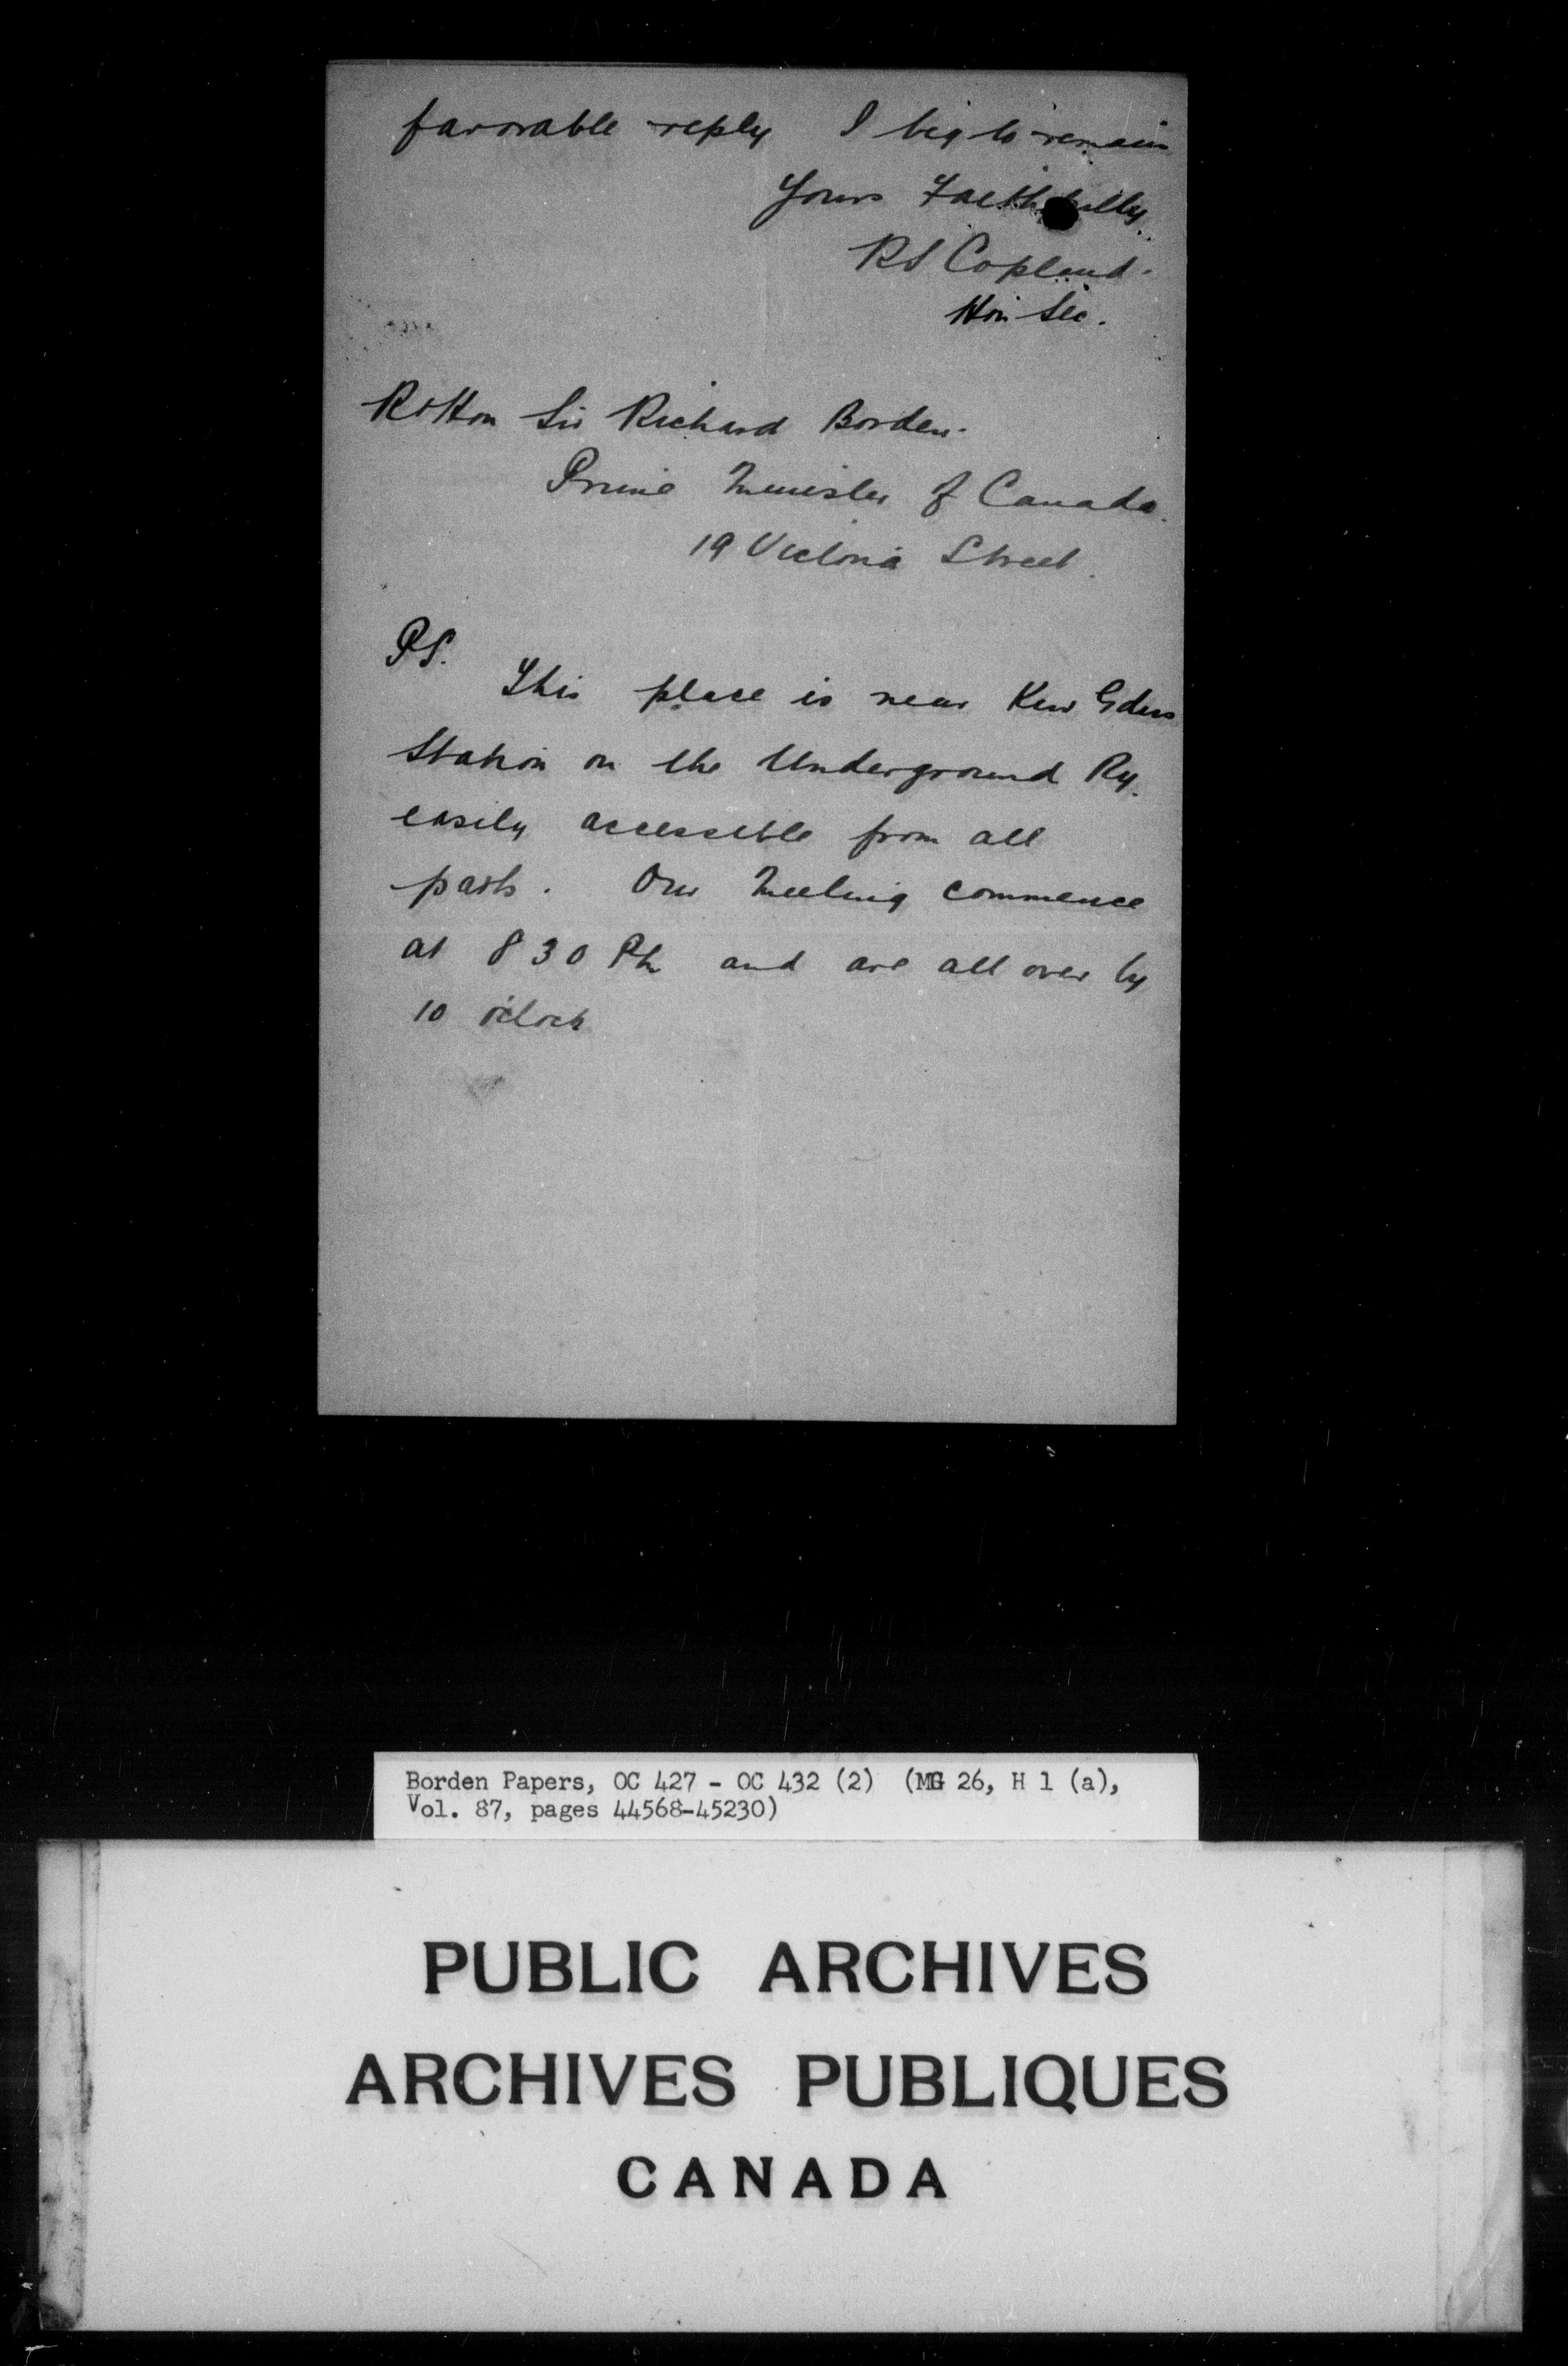 favorable reply I beg to remain
Yours Faithfully
RS Copland.
Hon Sec.
Rt Hon Sir Richard Borden.
Prime Minister of Canada.
19 Victoria Street.
PS.
This place is near Kew Gdns
Station on the Underground Ry.
easily accessible from all
parts. Our Meeting commence
at 8 30 PM and are all over by
10 o'clock
Borden Papers, OC 427 - OC 432 (2) (MG 26, H 1 (a),
Vol. 87, pages 44568-45230)
PUBLIC ARCHIVES
ARCHIVES PUBLIQUES
CANADA